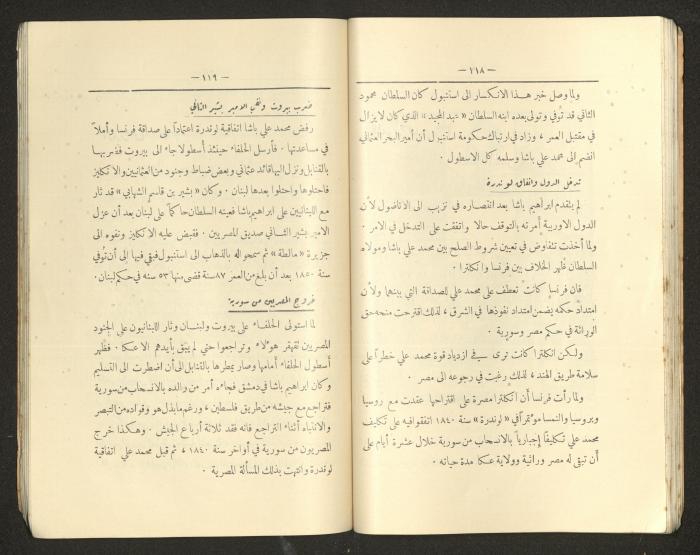 — ١١٨ —
ولما وصل خبر هذا الانكسار الى استنبول كان السلطان محمود
الثاني قد تُوفي وتولى بعده ابنه السلطان « عبد المجيد » الذي كان لا يزال
في مقتبل العمر ، وزاد في ارتباك حكومة استنبول أن أمير البحر العثماني
انضم الى محمد علي باشا وسلمه كل الاسطول .
تدخل الدول واتفاق لوندرة
لم يتقدم ابراهيم باشا بعد انتصاره في نزيب الى الاناضول لأن
الدول الاوربية أمرته بالتوقف حالا واتفقت على التدخل في الامر .
ولما أخذت تتفاوض في تعيين شروط الصلح بين محمد علي باشا ومولاه
السلطان ظهر الخلاف بين فرنسا وانكلترا .
فان فرنسا كانت تعطف على محمد علي للصداقة التي بينهما ولأن
امتداد حكمه يضمن امتداد نفوذها في الشرق ، لذلك اقترحت منحه حق
الوراثة في حكم مصر وسورية .
ولكن انكلترا كانت ترى في ازدياد قوة محمد علي خطراً على
سلامة طريق الهند ، لذلك رغبت في رجوعه الى مصر .
ولما رأت فرنسا أن انكلترا مصرة على اقتراحها عقدت مع روسيا
وبروسيا والنمسا مؤتمراً في « لوندرة » سنة ١٨٤٠ اتفقوا فيه على تكليف
محمد علي تكليفاً إجبارياً بالانسحاب من سورية خلال عشرة أيام على
أن تبقى له مصر وراثية وولاية عكا مدة حياته .
— ١١٩ —
ضرب بيروت ونفي الامير بشير الثاني
رفض محمد علي باشا اتفاقية لوندرة اعتماداً على صداقة فرنسا وأملاً
في مساعدتها . فأرسل الحلفاء حينئذ أسطولا جاء الى بيروت فضربها
بالقنابل ونزل اليها قائد عثماني وبعض ضباط وجنود من العثمانيين والانكليز
فاحتلوها واحتلوا بعدها لبنان . وكان « بشير بن قاسم الشهابي » قد ثار
مع اللبنانيين على ابراهيم باشا فعينه السلطان حاكماً على لبنان بعد أن عزل
الامير بشير الثاني صديق المصريين . فقبض عليه الانكليز ونفوه الى
جزيرة « مالطة » ثم سمحوا له بالذهاب الى استنبول فبقي فيها إلى أن تُوفي
سنة ١٨٥٠ بعد أن بلغ من العمر ٨٧ سنة قضى منها ٥٣ سنه في حكم لبنان .
خروج المصريين من سورية
لما استولى الحلفاء على بيروت ولبنان وثار اللبنانيون على الجنود
المصريين تقهقر هؤلاء وتراجعوا حتى لم يبق بأيدهم الا عكا . فظهر
أسطول الحلفاء أمامها وصار يمطرها بالقنابل الى أن اضطرت الى التسليم
وكان ابراهيم باشا في دمشق فجاءه أمر من والده بالانسحاب من سورية
فتراجع مع جيشه من طريق فلسطين ، ورغم ما بذل هو وقواده من التبصر
والانتباه أثناء التراجع فانه فقد ثلاثة أرباع الجيش . وهكذا خرج
المصريون من سورية في أواخر سنة ١٨٤٠ ، ثم قبل محمد علي اتفاقية
لوندرة وانتهت بذلك المسألة المصرية .